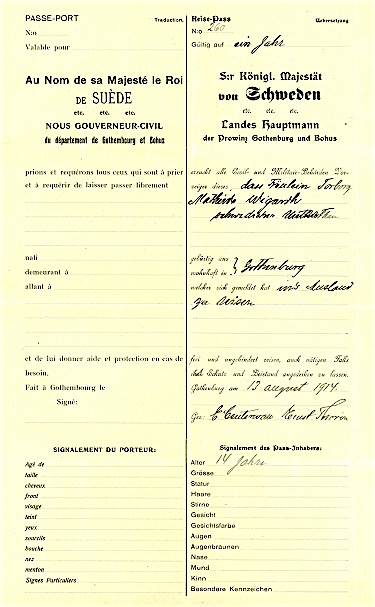 PASSE-PORT
Traduction.
N:o
Valable pour
Au Nom de sa Majesté le Roi
DE SUÈDE
etc. etc. etc.
NOUS GOUVERNEUR-CIVIL
du département de Gothembourg et Bohus
prions et requérons tous ceux qui sont à prier
et à requérir de laisser passer librement
nati
demeurant à
allant à
et de lui donner aide et protection en cas de
besoin.
Fait à Gothembourg le
Signé:
SIGNALEMENT DU PORTEUR:
Agé de
taille
cheveux
front
visage
teint
yeux
sourcils
bouche
nez
menton
Signes Particuliers
Reise-Pass
Uebersetzung
N:o 260
Gültig auf ein Jahr
S:r Königl. Majestät
von Schweden
etc. etc. etc.
Landes Hauptmann
der Prowinz Gothenburg und Bohus
ersucht alle Civil- und Militair-Behörden Vor-
zeiger dieses, dass Fräulein Torborg
Mathilda Wigardh
gebürtig aus
wohnhaft in } Gothenburg
welcher sich gemeldet hat in's Ausland
zu reisen
frei und ungehindert reisen, auch nötigen Falls
ihch Schutz und Beistand angedeihen zu lassen.
Gothenburg am 13 august 1914.
Gez:
Signalement des Pass-Inhabers:
Alter 14 Jahre
Grösse
Statur
Haare
Stirne
Gesicht
Gesichtsfarbe
Augen
Augenbraunen
Nase
Mund
Kinn
Besondere Kennzeichen